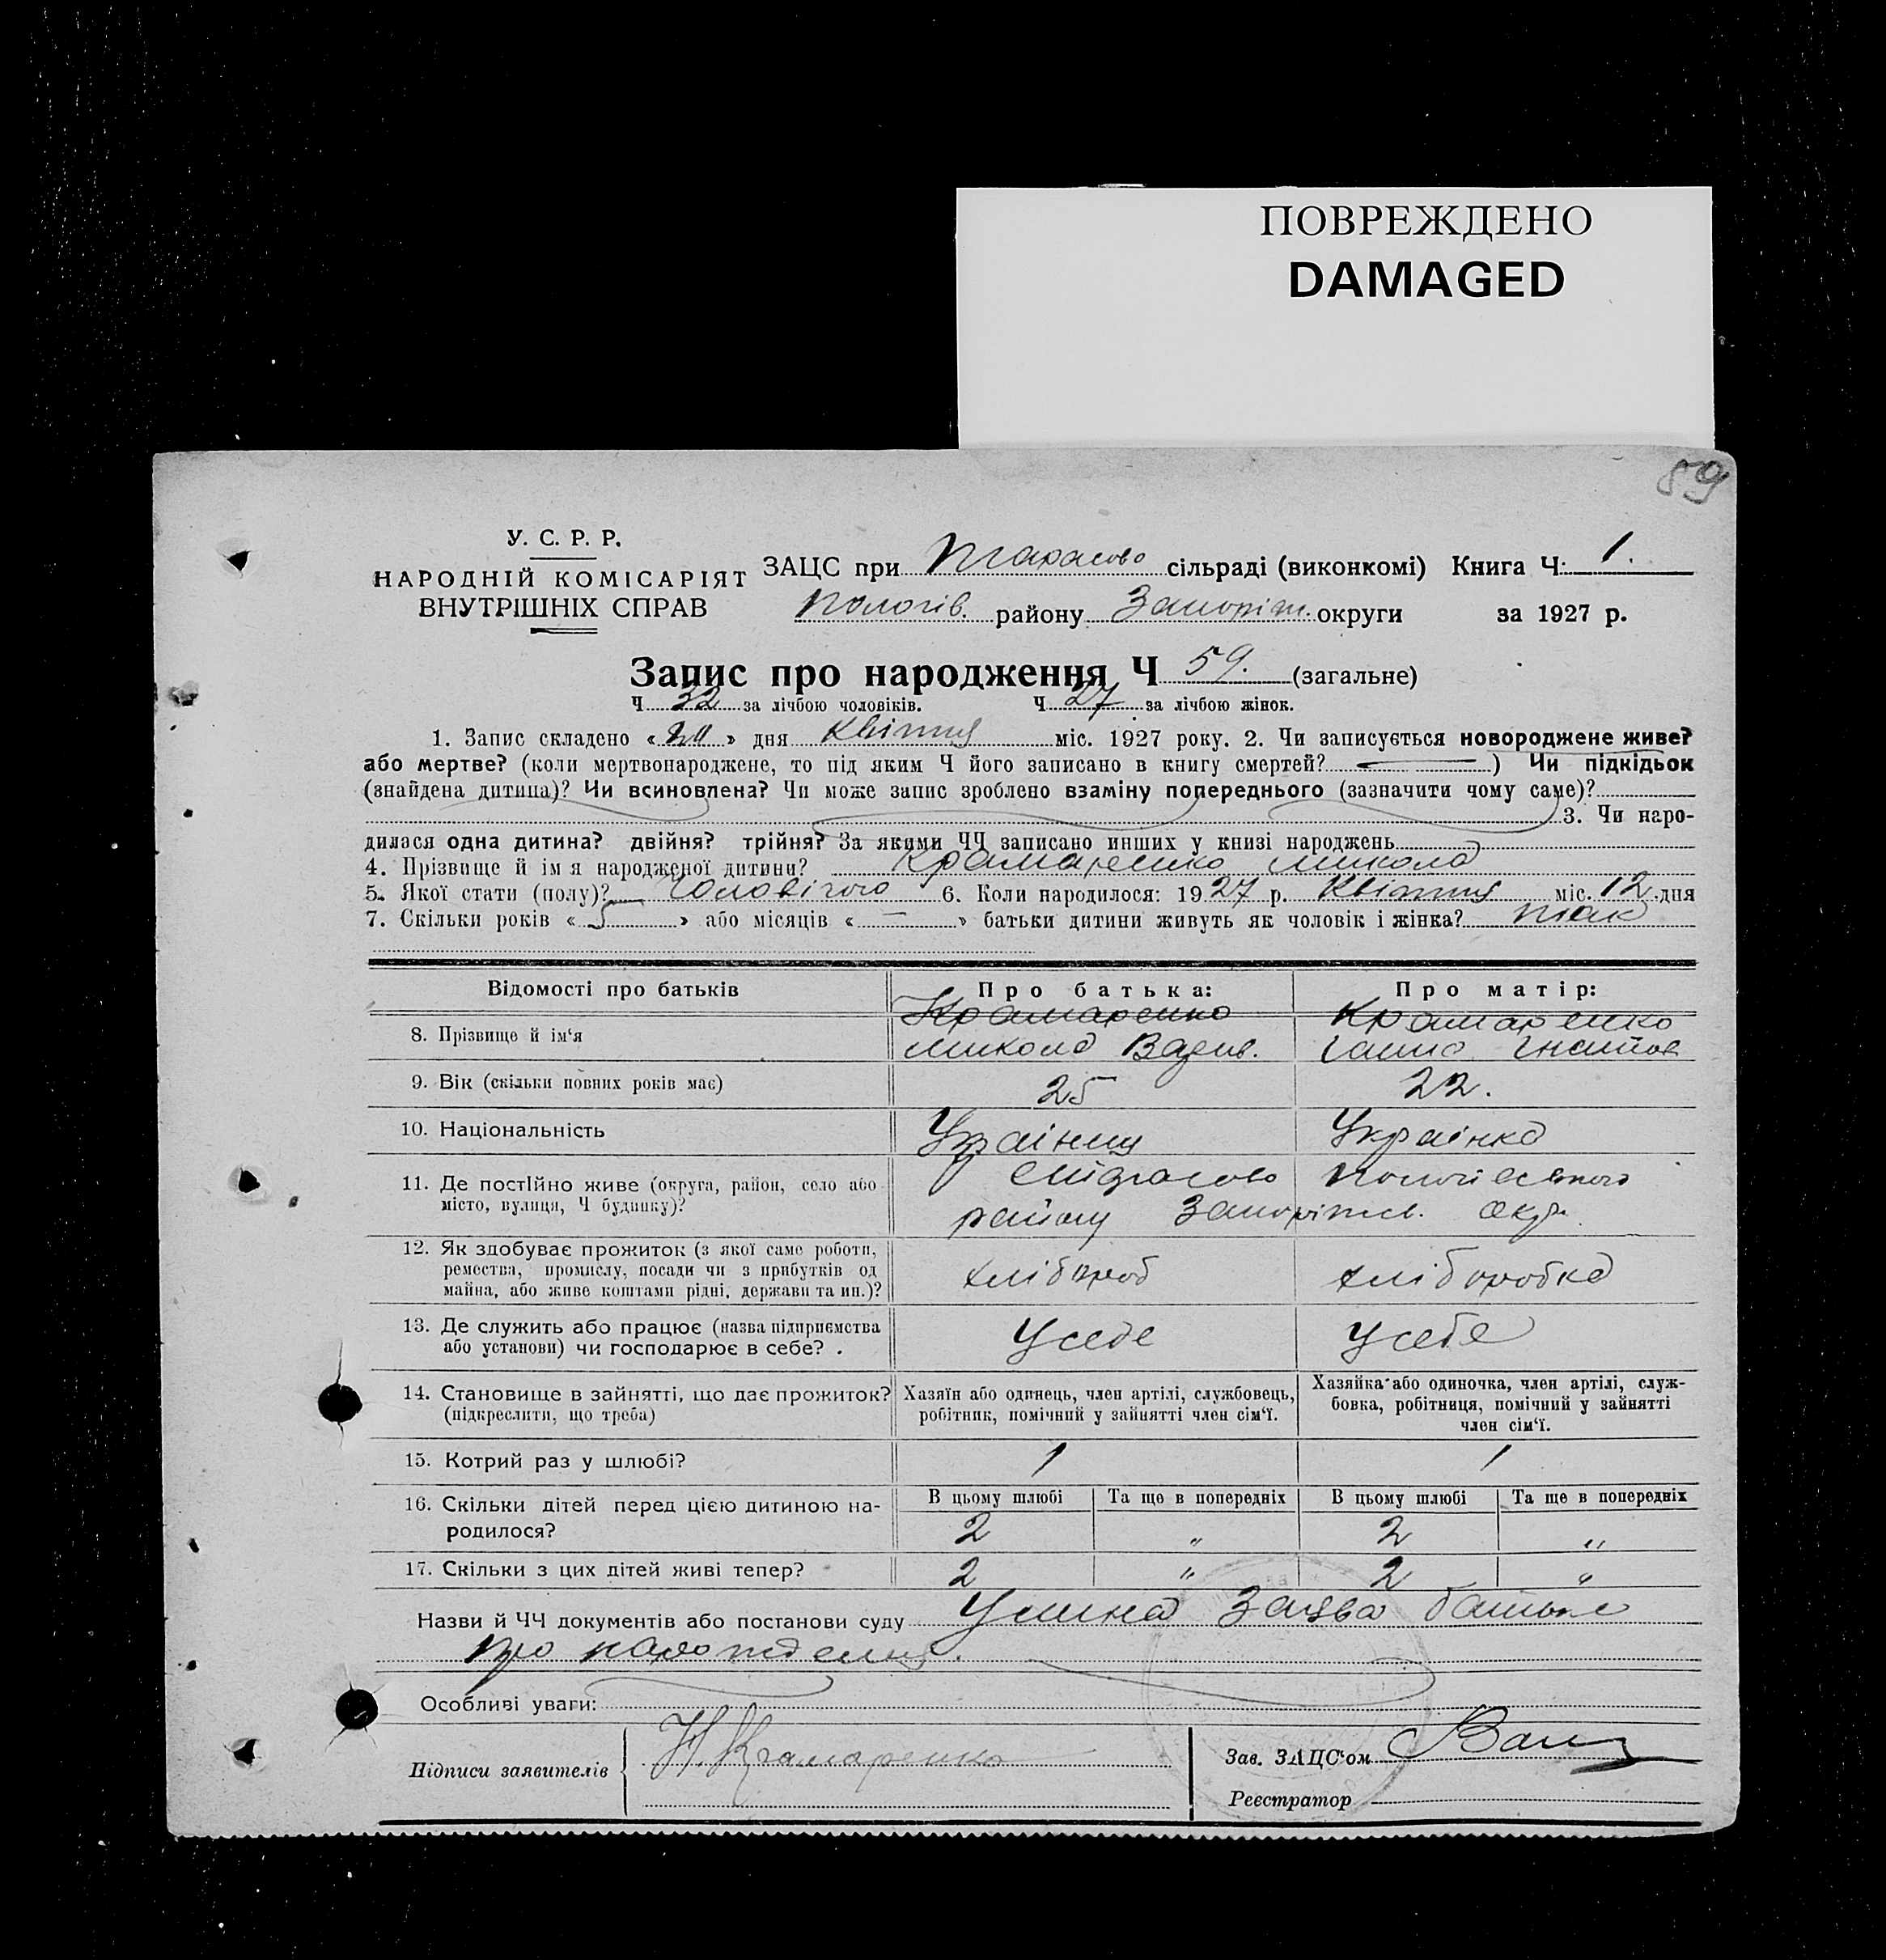 ПОВРЕЖДЕНО
DAMAGED
59
У. С. Р. Р.
НАРОДНІЙ КОМІСАРІЯТ
ВНУТРІШНІХ СПРАВ
ЗАЦС при Тарасово сільраді (виконкомі) Книга Ч: 1.
Пологів. району Запоріж. округи за 1927 р.
Запис про народження Ч 59. (загальне)
Ч 32 за лічбою чоловіків. Ч 27 за лічбою жінок.
1. Запис складено « » дня Квітня міс. 1927 року. 2. Чи записується новороджене живе?
або мертве? (коли мертвонароджене, то під яким Ч його записано в книгу смертей? — ) Чи підкідьок
(знайдена дитина)? Чи всиновлена? Чи може запис зроблено взаміну попереднього (зазначити чому саме)?
3. Чи наро-
дилася одна дитина? двійня? трійня? За якими ЧЧ записано инших у книзі народжень
4. Прізвище й ім я народженої дитини? Крамаренко Микола
5. Якої стати (полу)? Чоловічого 6. Коли народилося: 1927 р. Квітня міс. 12 дня
7. Скільки років « 5 » або місяців « — » батьки дитини живуть як чоловік і жінка? так
Відомості про батьків Про батька: Про матір:
8. Прізвище й ім‘я Крамаренко Микола Крамаренко Ганна
9. Вік (скільки повних років має) 25 22.
10. Національність Українець Українка
11. Де постійно живе (округа, район, село або
місто, вулиця, Ч будинку)?
району Запоріжж. Окр.
12. Як здобуває прожиток (з якої саме роботи,
ремества, промислу, посади чи з прибутків од
майна, або живе коштами рідні, держави та ин.)? хлібороб хліборобка
13. Де служить або працює (назва підприємства
або установи) чи господарює в себе? . У себе У себе
14. Становище в зайнятті, що дає прожиток?
(підкреслити, що треба)
Хазяїн або одинець, член артілі, службовець,
робітник, помічний у зайнятті член сім‘ї.
Хазяйка або одиночка, член артілі, служ-
бовка, робітниця, помічний у зайнятті
член сім‘ї.
15. Котрий раз у шлюбі? 1 1
16. Скільки дітей перед цією дитиною на-
родилося?
В цьому шлюбі Та ще в попередніх В цьому шлюбі Та ще в попередніх
2 " 2 "
17. Скільки з цих дітей живі тепер? 2 " 2 "
Назви й ЧЧ документів або постанови суду Усина Заява батька
про народження.
Особливі уваги:
Підписи заявителів Н. Крамаренко
Зав. ЗАЦС‘ом
Реєстратор